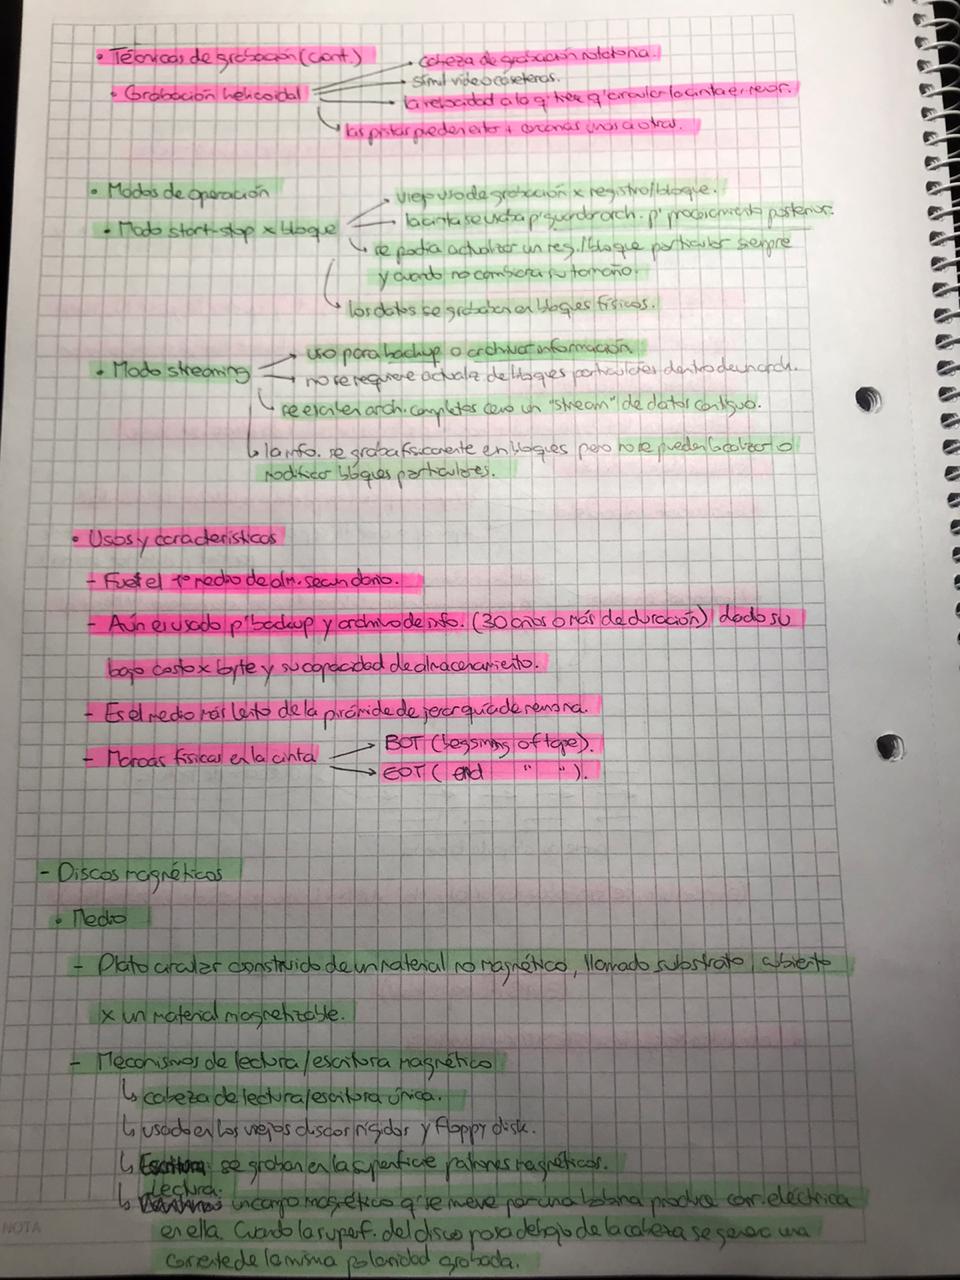 • Técnicas de grabación (cont.)
• Grabación helicoidal
→ cabeza de grabación rotatoria.
→ simil videocaseteras.
→ la velocidad a la q' tiene q' circular la cinta es menor.
→ las pistas pueden estar + cercanas unas a otras.
• Modos de operación
• Modo start-stop x bloque
→ viejo uso de grabación x registro/bloque.
→ la cinta se usaba p' guardar arch. p' procesamiento posterior.
↳ se podía actualizar un reg./bloque particular siempre
y cuando no cambiara su tamaño.
↳ los datos se grababan en bloques físicos.
• Modo streaming
→ uso para backup o archivar información.
→ no se requiere actualiz de bloques particulares dentro de un arch.
↳ se escriben arch. completos como un "stream" de datos contiguo.
↳ la info. se graba físicamente en bloques pero no se pueden localizar o
modificar bloques particulares.
• Usos y características
- Fue el 1º medio de alm. secundario.
- Aún es usado p' backup y archivo de info. (30 años o más de duración) dado su
bajo costo x byte y su capacidad de almacenamiento.
- Es el medio más lento de la pirámide de jerarquía de memoria.
- Marcas físicas en la cinta
→ BOT (beginning of tape).
→ EOT ( end " " ).
- Discos magnéticos
• Medio
- Plato circular construido de un material no magnético, llamado substrato, cubierto
x un material magnetizable.
- Mecanismos de lectura/escritura magnético
↳ cabeza de lectura/escritura única.
↳ usado en los viejos discos rígidos y floppy disk.
↳ Escritura: se graban en la superficie patrones magnéticos.
Lectura:
↳ un campo magnético q' se mueve por una bobina produce corr. eléctrica
en ella. Cuando la superf. del disco pasa debajo de la cabeza se genera una
corriente de la misma polaridad grabada.
NOTA